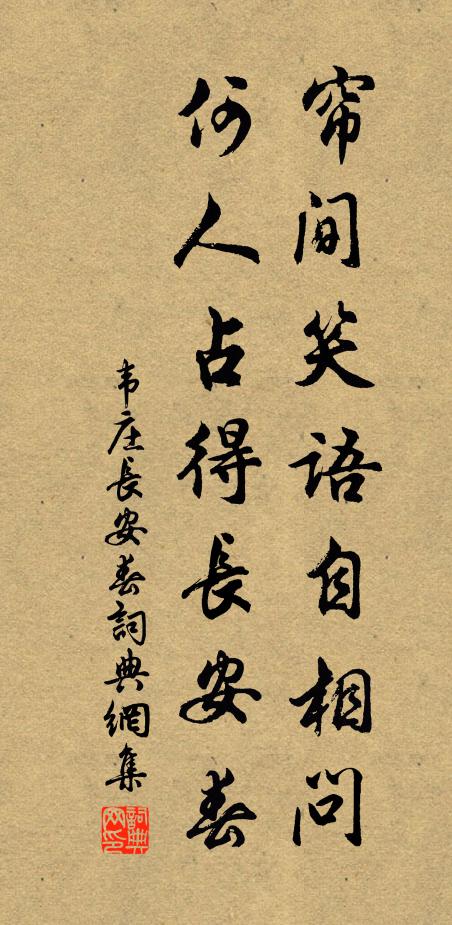 帘间笑语自相问
何人占得長安春
韦庄長安春詞典網集
詞典网印